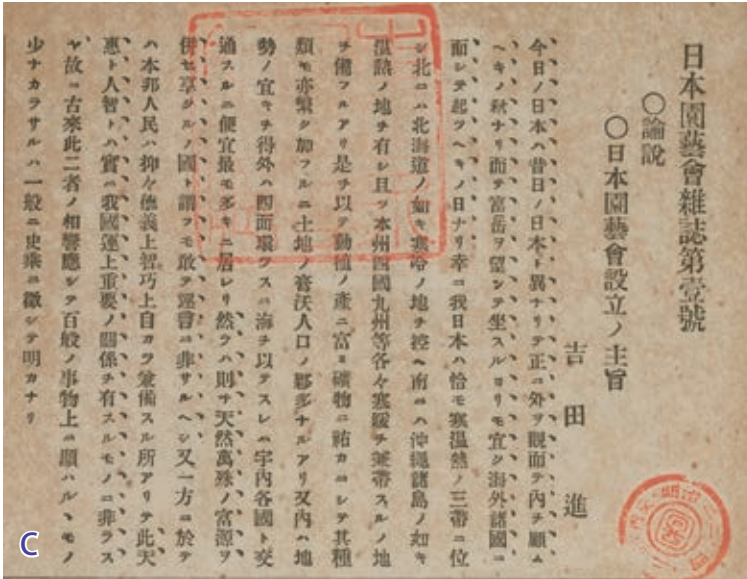 日本園藝會雜誌第壹號
〇論說
〇日本園藝會設立ノ主旨
吉田進
今日ノ日本ハ昔日ノ日本ト異ナリテ正ニ外ヲ觀而テ內ヲ顧ム
ヘキノ秋ナリ而テ富岳ヲ望ンテ坐スルヨリモ宜シク海外諸國ニ
面シテ起ツヘキノ日ナリ幸ニ我日本ハ恰モ寒温熱ノ三帶ニ位
シ北ニハ北海道ノ如キ寒冷ノ地ヲ控ヘ南ニハ沖繩諸島ノ如キ
温熱ノ地ヲ有シ且ツ本州四國九州等各々寒暖ヲ兼帶スルノ地
ヲ備フルアリ是ヲ以テ動植ノ產ニ富ミ礦物ニ祐カニシテ其種
類モ亦繁シ加フルニ土地ノ膏沃人口ノ夥多ナルアリ又內ハ地
勢ノ宜キヲ得外ハ四面環ラスニ海ヲ以テスレハ宇內各國ト交
通スルニ便宜最モ多キニ居レリ然ラハ則チ天然萬殊ノ富源ヲ
併セ享クルノ國ト謂フモ敢テ過言ニ非サルヘシ又一方ニ於テ
ハ本邦人民ハ抑々德義上智巧上自カラ兼備スル所アリテ此天
惠ト人智トハ實ニ我國運上重要ノ關係ヲ有スルモノニ非ラス
ヤ故ニ古來此二者ノ相響應シテ百般ノ事物上ニ顯ハルヽモノ
少ナカラサルハ一般ニ史乘ニ徵シテ明カナリ
C